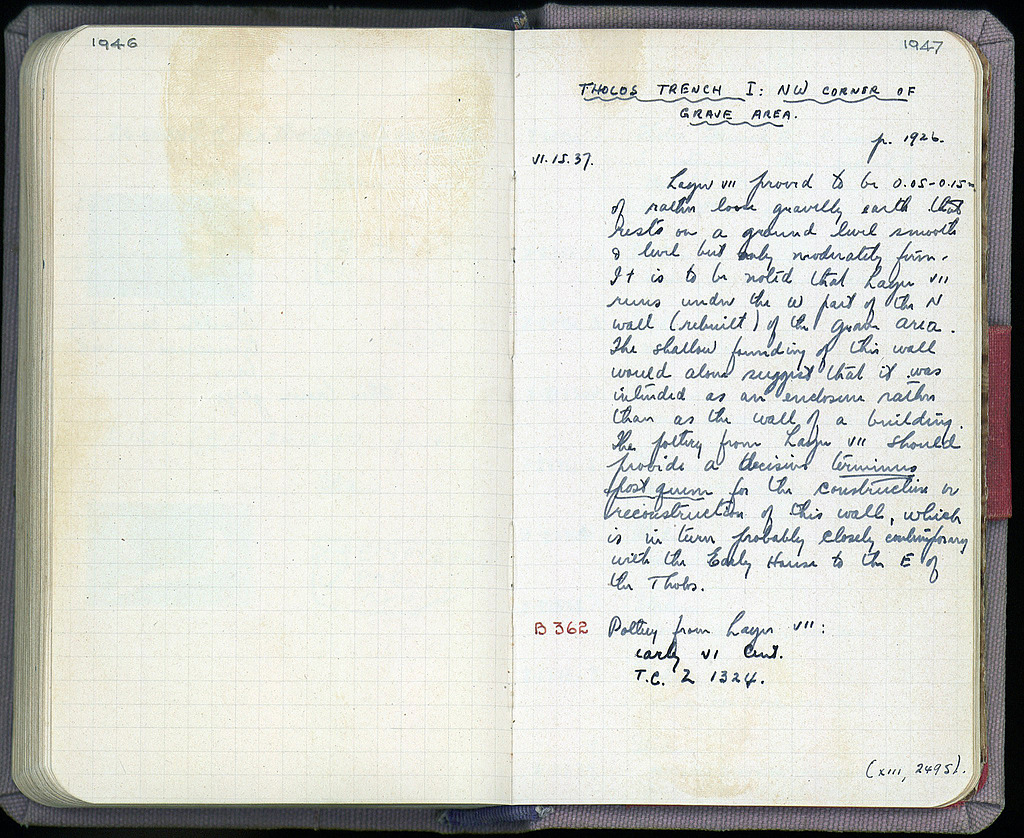 1946
1947
THOLOS TRENCH I: NW CORNER OF
GRAVE AREA.
p. 1926.
VI.15.37.
Layer VII proved to be 0.05-0.15m
of rather loose gravelly earth that
rests on a ground level smooth
& level but only moderately firm.
It is to be noted that Layer VII
runs under the W part of the N
wall (rebuilt) of the grave area.
The shallow founding of this wall
would alone suggest that it was
intended as an enclosure rather
than as the wall of a building.
The pottery from Layer VII should
provide a decisive terminus
post quem for the construction or
reconstruction of this wall, which
is in turn probably closely contemporary
with the Early House to the E of
the Tholos.
B 362 Pottery from Layer VII:
early VI Cent.
T.C. 2 1324.
(XIII, 2495).